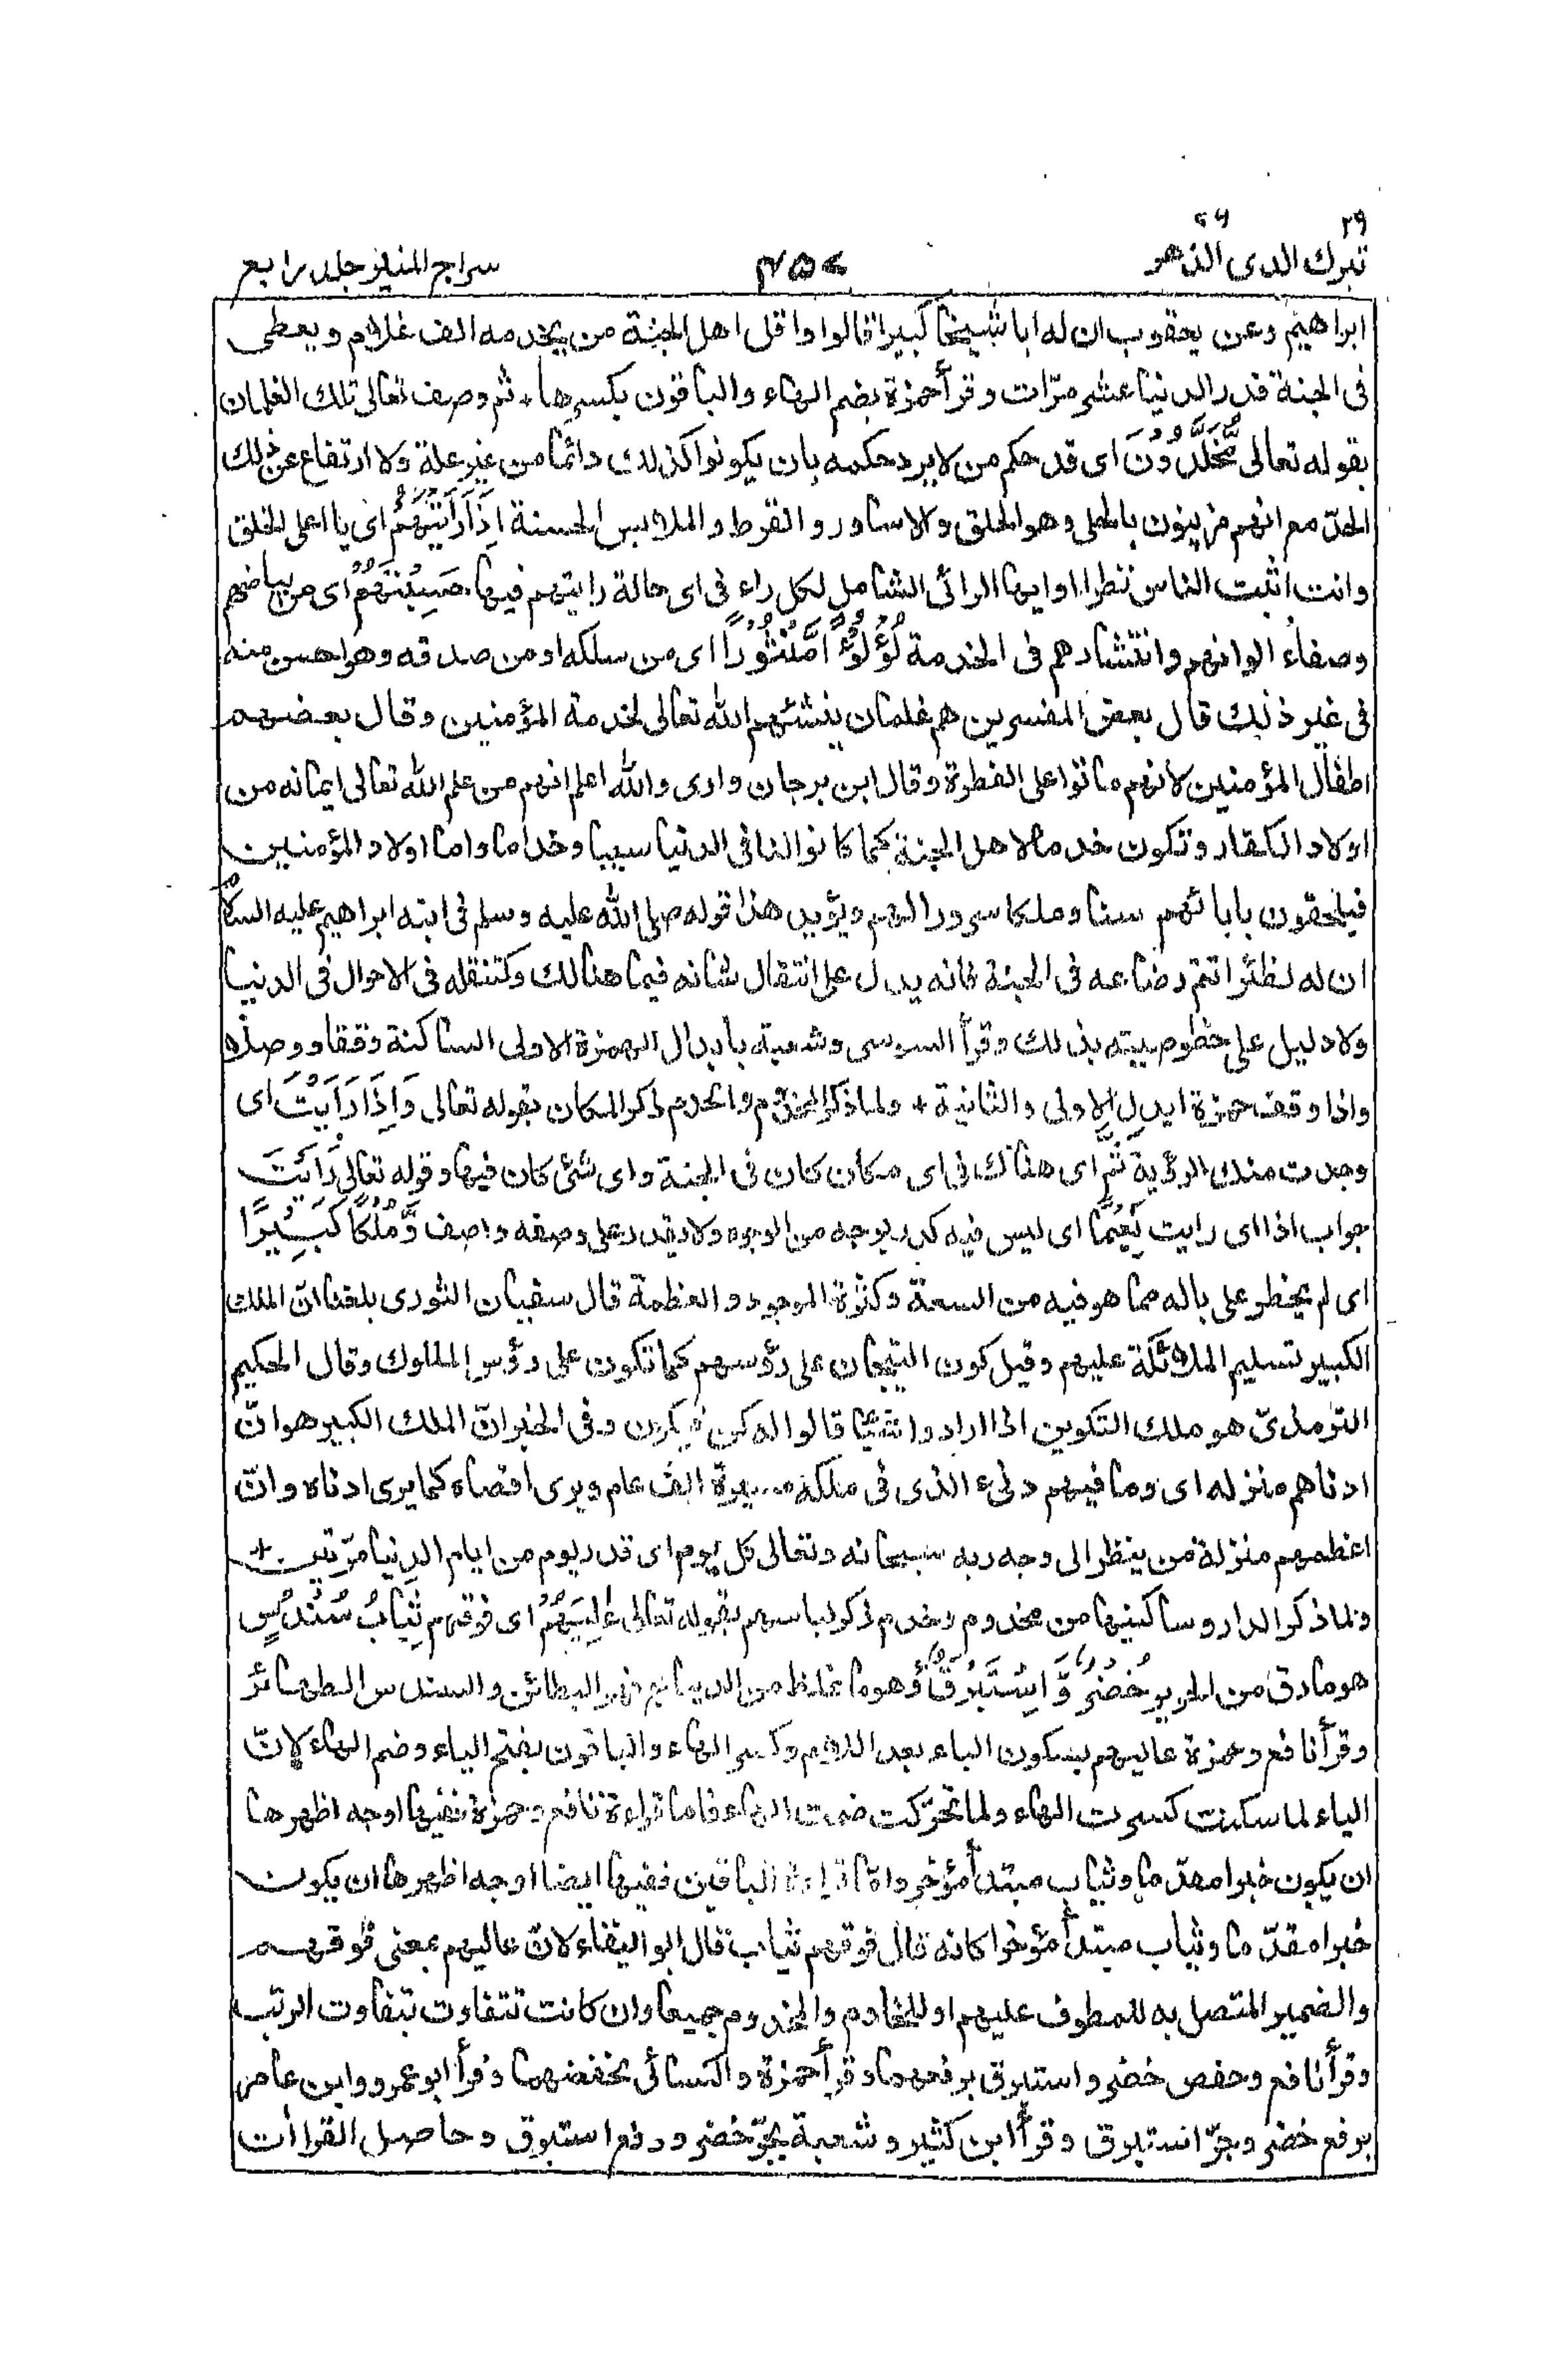 ٢٩ ٧٦
تبرك الذى الدهر ٤٥٧ سراج المنير جلد رابع
ابراهيم وعن يعقوب ان له ابا شيخا كبيرا قالوا واقل اهل الجنة من يخدمه الف غلام ويعطى
فى الجنة قدر الدنيا عشر مرّات وقرأ حمزة بضم الهاء والباقون بكسرها * ثم وصف تعالى تلك الغلمان
بقوله تعالى مُّخَلَّدُونَ اى قد حكم من لا يرد حكمه بان يكونوا كذلك دائما من غير علة ولا ارتفاع عن ذلك
الحدّ مع انهم مزينون بالحلى وهو الحلق والاساور والقرط والملابس الحسنة اِذَا رَاَيْتَهُمْ اى يا اعلى الخلق
وانت اثبت الناس نظرا او ايها الرائى الشامل لكل راء فى اى حالة رايتهم فيها حَسِبْتَهُمْ اى من بياضهم
وصفاء الوانهم وانتشارهم فى الخدمة لُؤْلُؤًا مَّنْثُوْرًا اى من سلكه او من صدفه وهو احسن منه
فى غير ذلك قال بعض المفسرين هم غلمان ينشئهم الله تعالى لخدمة المؤمنين وقال بعضهم
اطفال المؤمنين لانهم ماتوا على الفطرة وقال ابن برجان وارى والله اعلم انهم من علم الله تعالى ايمانه من
اولاد الكفار وتكون خدما لاهل الجنة كما كانوا لنا فى الدنيا سبيا وخداما واما اولاد المؤمنين
فيلحقون باباٰئهم سنا وملكا سرورا لهم ويؤيد هذا قوله صلى الله عليه وسلم فى ابنه ابراهيم عليه السلام
ان له لظئرا تتم رضاعه فى الجنة فانه يدل على انتقال شانه فيما هنالك وكتنقله فى الاحوال فى الدنيا
ولا دليل على خصوصيته بذلك وقرأ السوسى وشعبة بابدال الهمزة الاولى الساكنة وقفا ووصلا
واذا وقف حمزة ابدل الاولى والثانية * ولما ذكر المخدوم والخدم ذكر المكان بقوله تعالى وَاِذَا رَاَيْتَ اى
وجدت منك الرؤية ثَمَّ اى هناك فى اى مكان كان فى الجنة واى شئ كان فيها وقوله تعالى رَاَيْتَ
جواب اذا اى رايت نَعِيْمًا اى ليس فيه كدر بوجه من الوجوه ولا يقدر على وصفه واصف وَّمُلْكًا كَبِيْرًا
اى لم يخطر على باله مما هو فيه من السعة وكثرة الموجود والعظمة قال سفيان الثورى بلغنا انّ الملك
الكبير تسليم الملائكة عليهم وقيل كون التيجان على رؤسهم كما تكون على رؤس الملوك وقال الحكيم
الترمذىّ هو ملك التكوين اذا ارادوا شيئا قالوا له كن فيكون وفى الخبر انّ الملك الكبير هو انّ
ادناهم منزله اى وما فيهم دنىء الذى فى ملكه مسيرة الف عام ويرى اقصاه كما يرى ادناه وانّ
اعظمهم منزلة من ينظر الى وجه ربه سبحانه وتعالى كل يوم اى قدر يوم من ايام الدنيا مرّتين *
ولما ذكر الدار وساكنيها من مخدوم وخدم ذكر لباسهم بقوله تعالى عٰلِيَهُمْ اى فوقهم ثِيَابُ سُنْدُسٍ
هو مادق من الحرير خُضْرٌ وَّ اِسْتَبْرَقٌ وهو ما غلظ من الديباج فهو البطائن والسندس الظهائر
وقرأ نافع وحمزة عاليهم بسكون الياء بعد اللام وكسر الهاء والباقون بفتح الياء وضم الهاء لانّ
الياء لما سكنت كسرت الهاء ولما تحرّكت ضمت الهاء فاما قراءة نافع وحمزة ففيها اوجه اظهرها
ان يكون خبرا مقدّما وثياب مبتدأ مؤخر واما قراءة الباقين ففيها ايضا اوجه اظهرها ان يكون
خبرا مقدّما وثياب مبتدأ مؤخرا كانه قال فوقهم ثياب قال ابو البقاء لانّ عاليهم بمعنى فوقهم
والضمير المتصل به للمطوف عليهم او للخادم والمخدوم جميعا وان كانت تتفاوت بتفاوت الرتب
وقرأ نافع وحفص خضر واستبرق برفعهما وقرأ حمزة والكسائى بخفضهما وقرأ ابو عمرو وابن عامر
برفع خضر وجرّ استبرق وقرأ ابن كثير وشعبة بجرّ خضر ورفع استبرق وحاصل القراأت